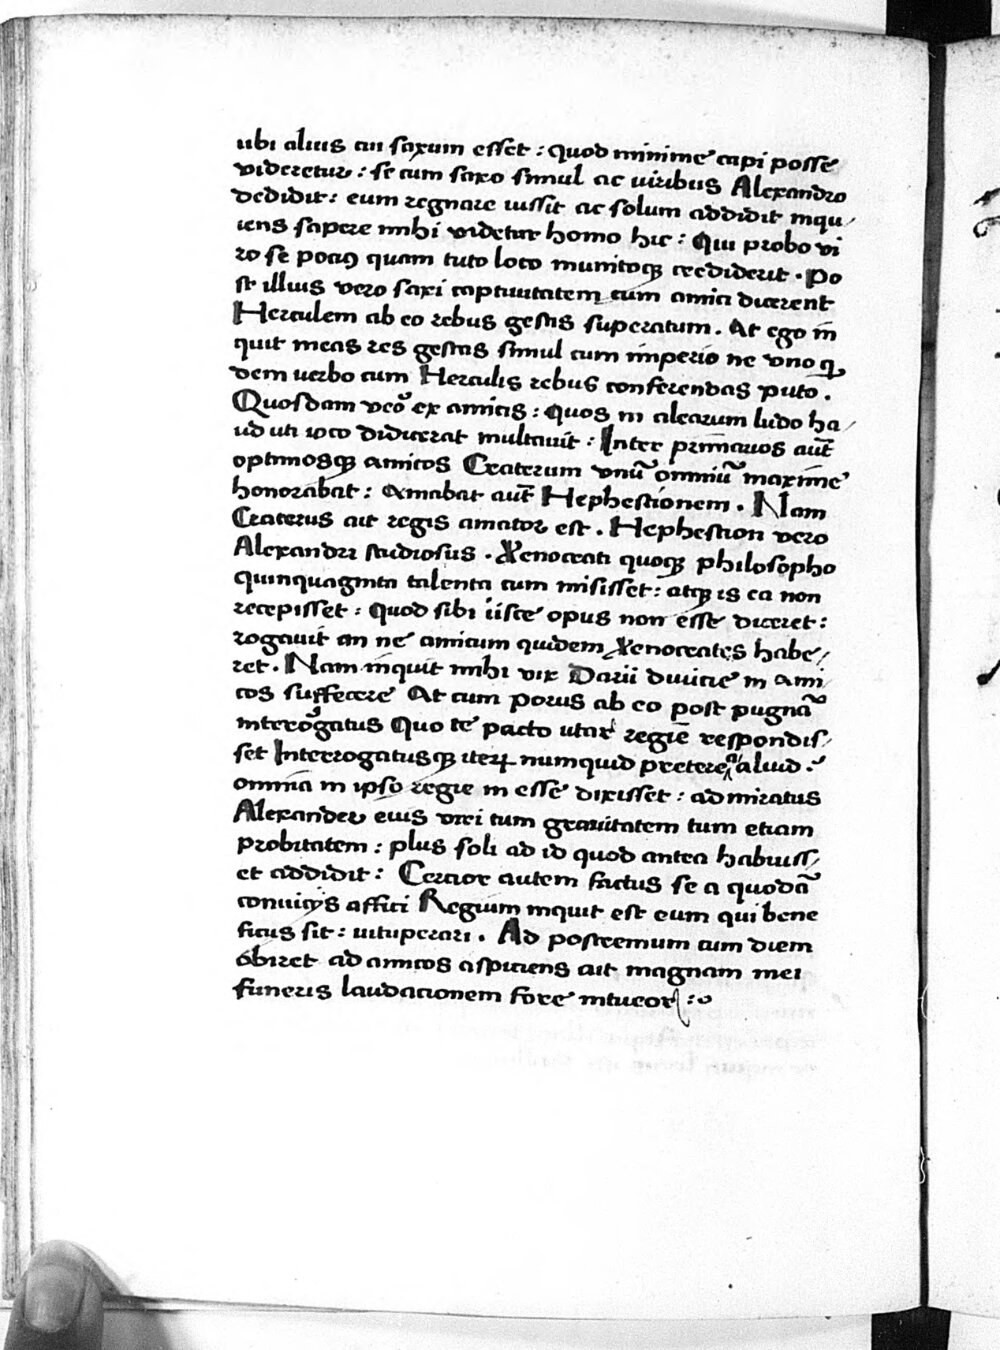 ubi alius an saxum esset : quod minime capi posse
videretur : se cum saxo simul ac viribus Alexandro
dedidit : eum regnare iussit ac solum addidit inqu/
iens sapere mihi videtur homo hic : Qui probo vi
ro se pociꝰ quam tuto loco munitoqꝫ crediderit . Po
st illius vero saxi captivitatem cum amici dicerent
Herculem ab eo rebus gestis superatum . At ego in
quit meas res gestas simul cum imperio ne vno q̄
dem uerbo cum Herculis rebus conferendas puto .
Quosdam veō ex amicis : quos in alearum ludo ha/
ud uti ioco didicerat multauit : Inter primarios aūt
optimosqꝫ amicos Craterum vnū omniū maxime
honorabat : Amabat aūt Hephestionem . Nam
Craterus ait regis amator est . Hephestion vero
Alexandri studiosus . Xenocrati quoqꝫ philosopho
quinquaginta talenta cum misisset : atqꝫ is ea non
recepisset : quod sibi iisce opus non esse diceret :
rogauit an ne amicum quidem Xenocrates habe/
ret . Nam inquit mihi vix Darii diuicie in ami/
cos suffecere At cum porus ab eo post pugnā
interrogatus Quo te pacto utar regie respondis/
set Interrogatusqꝫ iteꝝ numquid preterea aliud .
omnia in ipso regie in esse dixisset : admiratus
Alexander eius viri tum grauitatem tum etiam
probitatem : plus soli ad id quod antea habuiss/
et addidit : Cercior autem factus se a quodā
conuicijs affici Regium inquit est eum qui bene
ficus sit : uituperari . Ad postremum cum diem
obiret ad amicos aspiciens ait magnam mei
funeris laudacionem fore intueor :